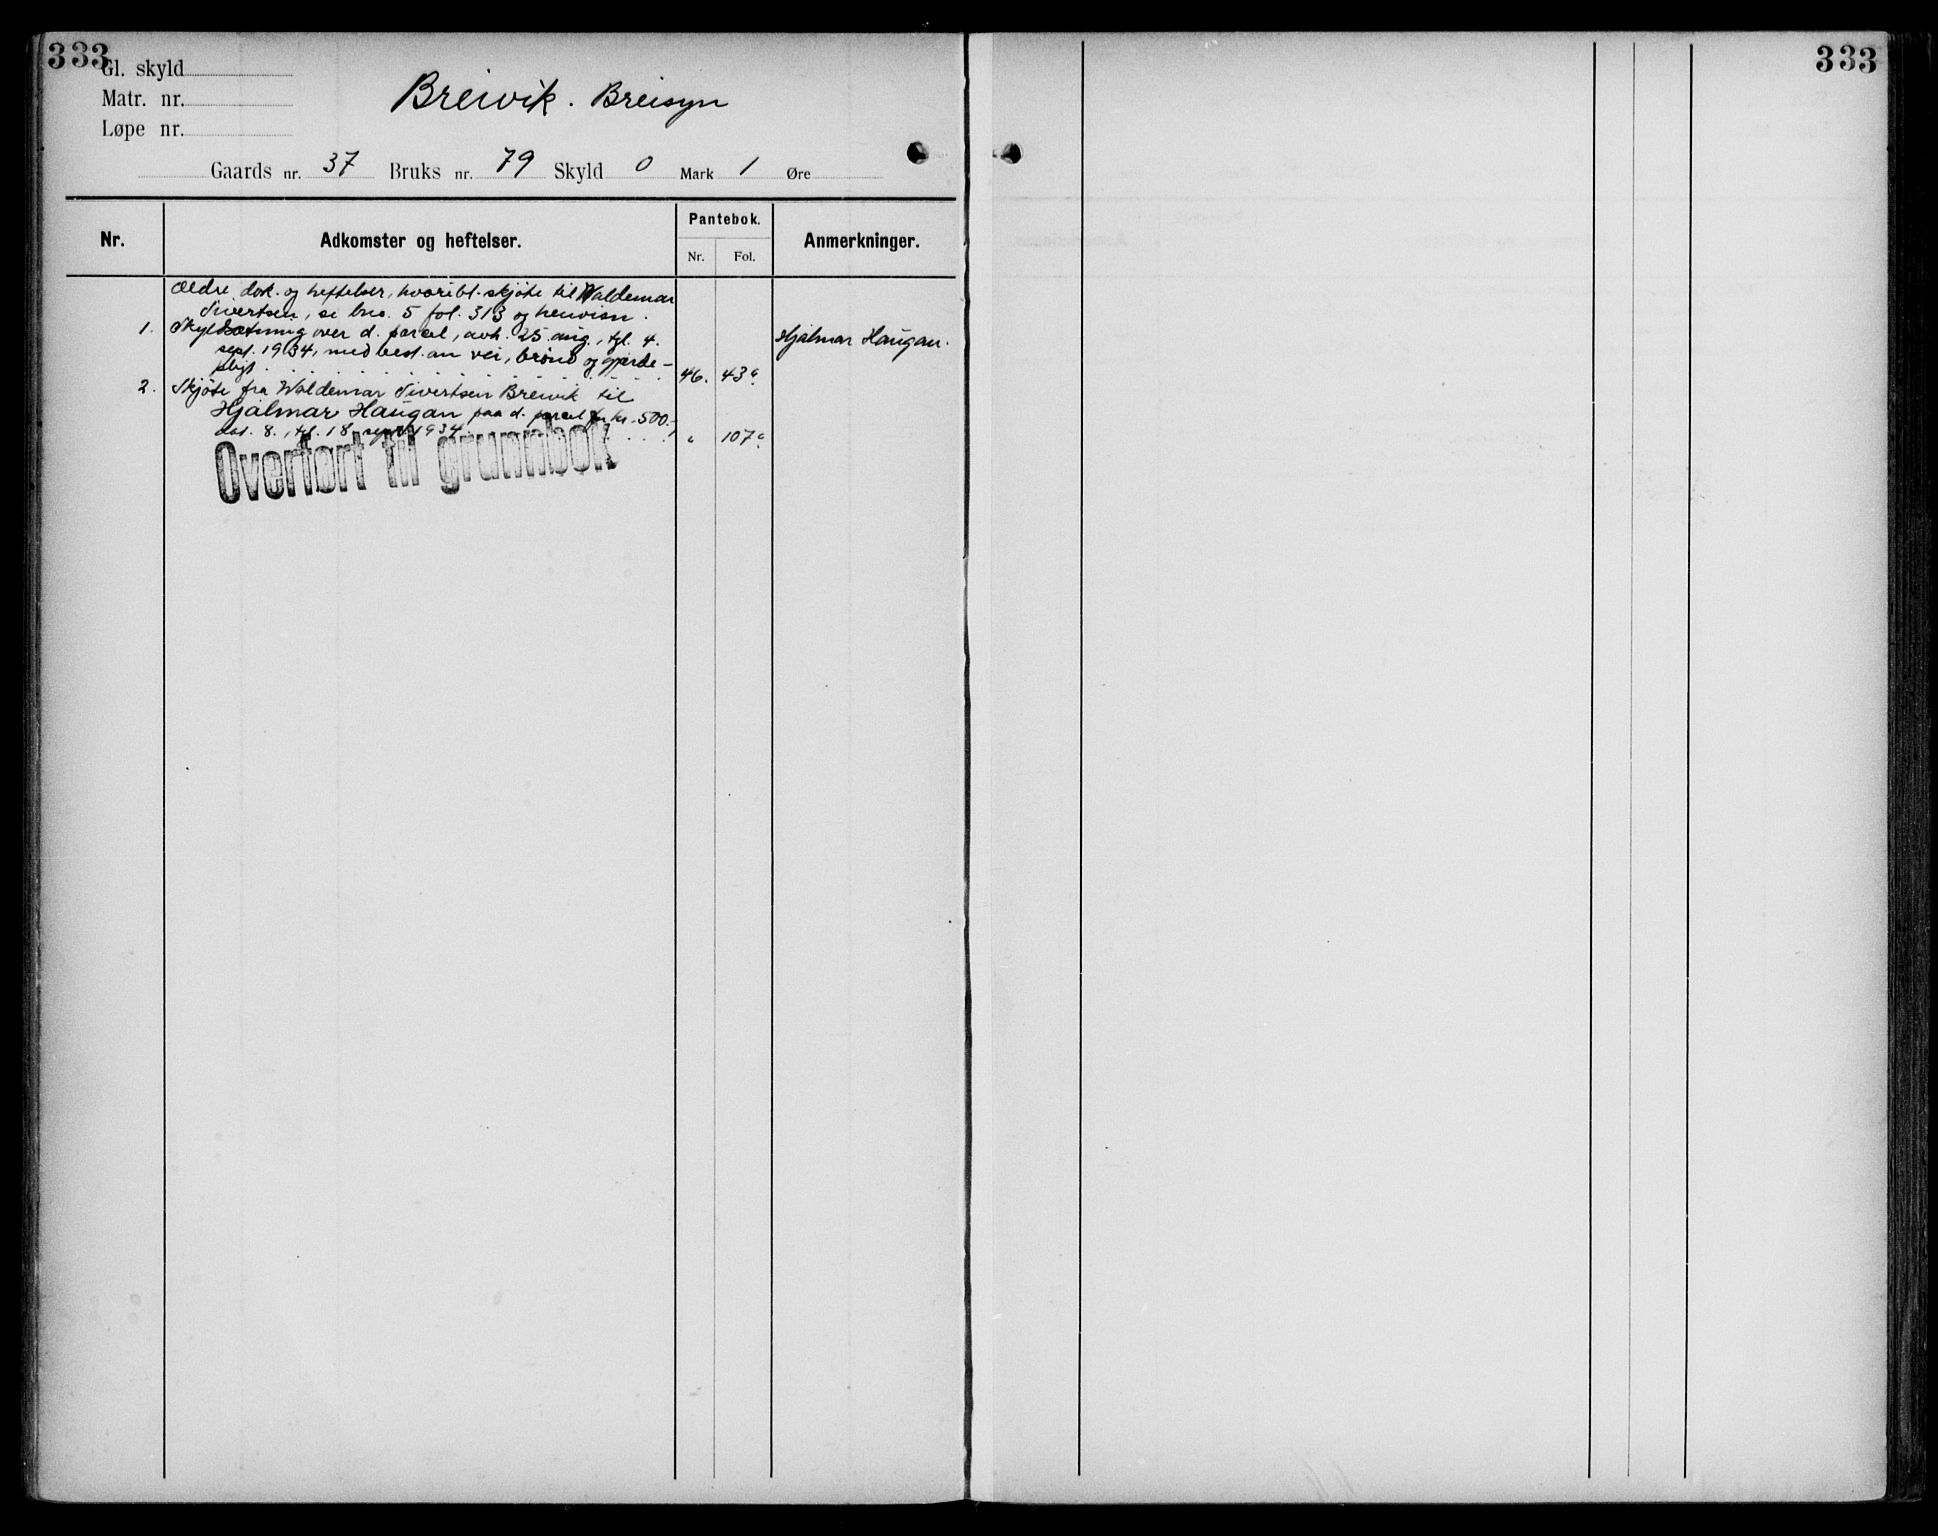 333
333
Gl. skyld
Matr. nr.
Løpe nr.
Breivik. Breisyn
Gaards nr. 37 Bruks nr. 79 Skyld 0 Mark 1 Øre
Nr.
Adkomster og heftelser.
Pantebok.
Nr.
Fol.
Anmerkninger.
Ældre dok. og heftelser, hvoribl. skjøte til Waldemar
Sivertsen, se bno. 5 fol. 313 og henvisn.
1. Skyldsætning over d. parcel, avh. 25. aug., tgl. 4.
sept. 1934, med best. om vei, brønd og gjerde-
pligt. 46. 43a
Hjalmar Haugan.
2. Skjøte fra Waldemar Sivertsen Breivik til
Hjalmar Haugan paa d. parcel for kr. 500.-,
dat. 8., tgl. 18. sept. 1934. " 107a
Overført til grunnbok